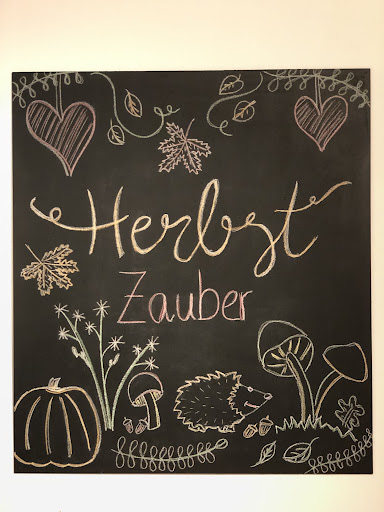 Herbst
Zauber